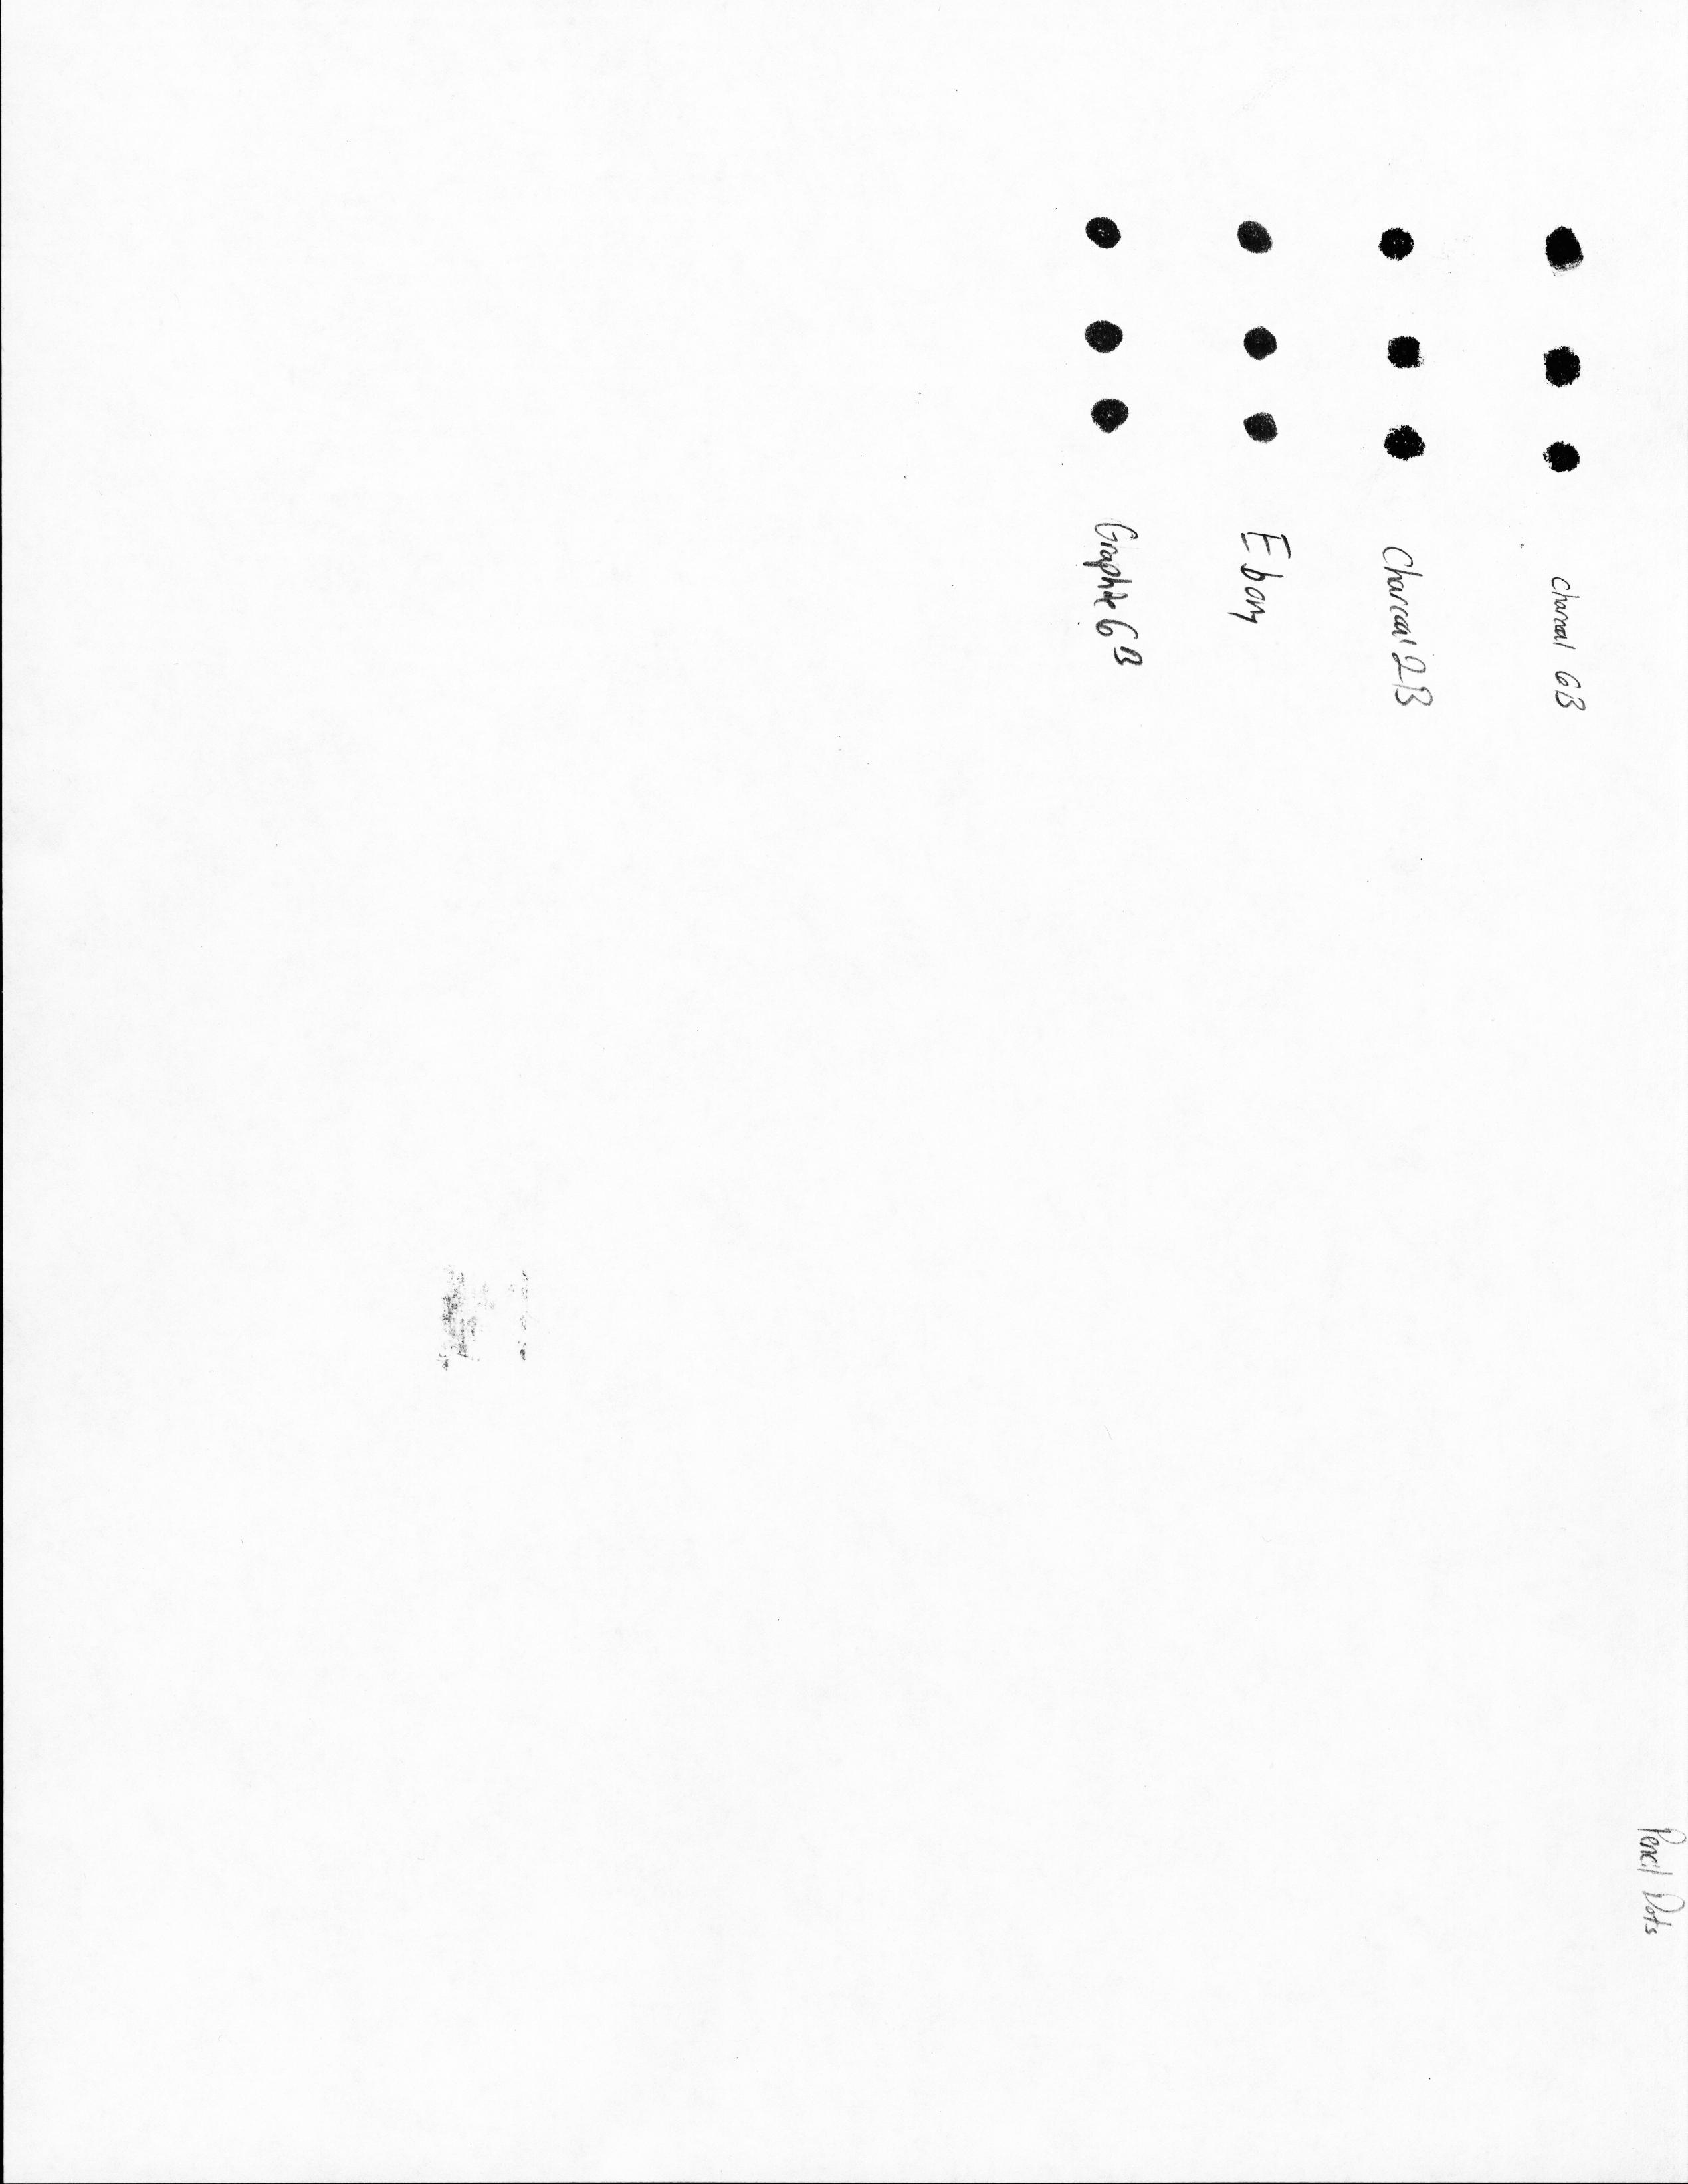 Pencil Dots
Charcoal 6B
Charcoal 2B
Ebony
Graphite 6B